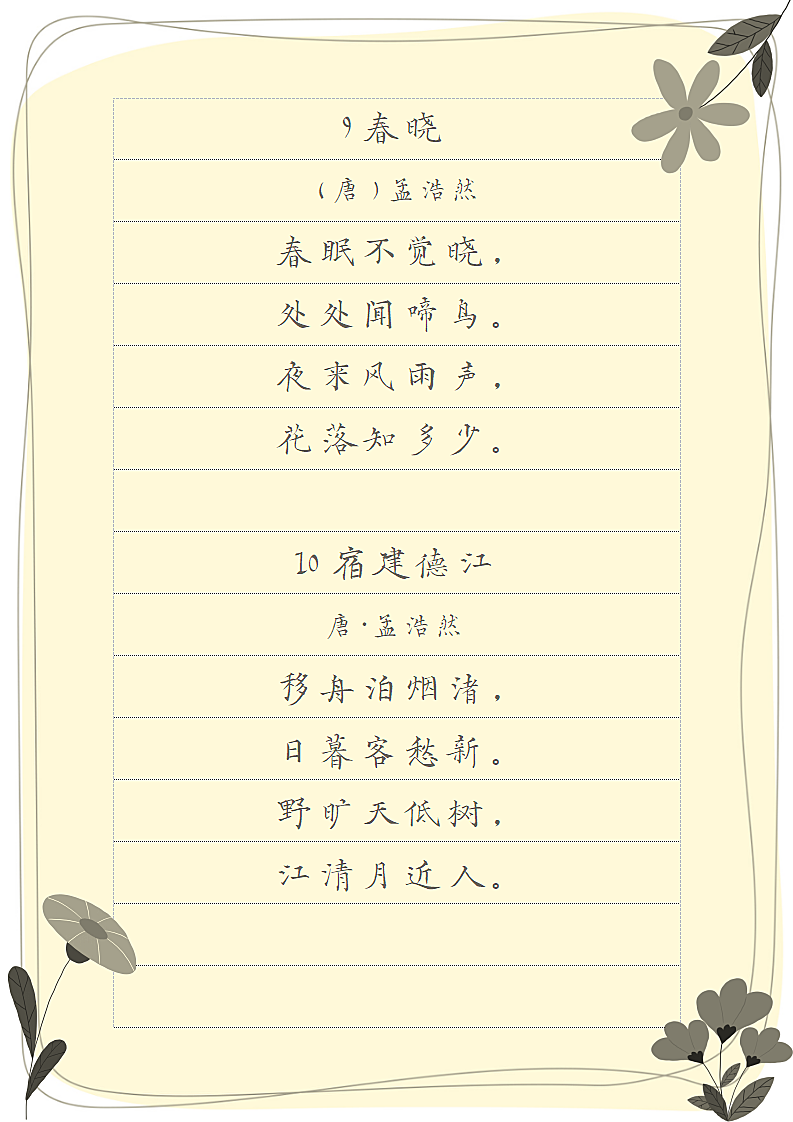 9 春晓
（唐）孟浩然
春眠不觉晓，
处处闻啼鸟。
夜来风雨声，
花落知多少。
10 宿建德江
唐·孟浩然
移舟泊烟渚，
日暮客愁新。
野旷天低树，
江清月近人。